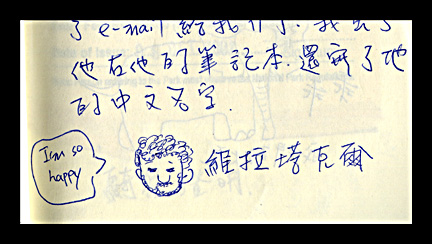 了 e-mail 給我
他在他的筆記本.還寫了他
的中文名字.
I'm so
happy
維拉塔克爾